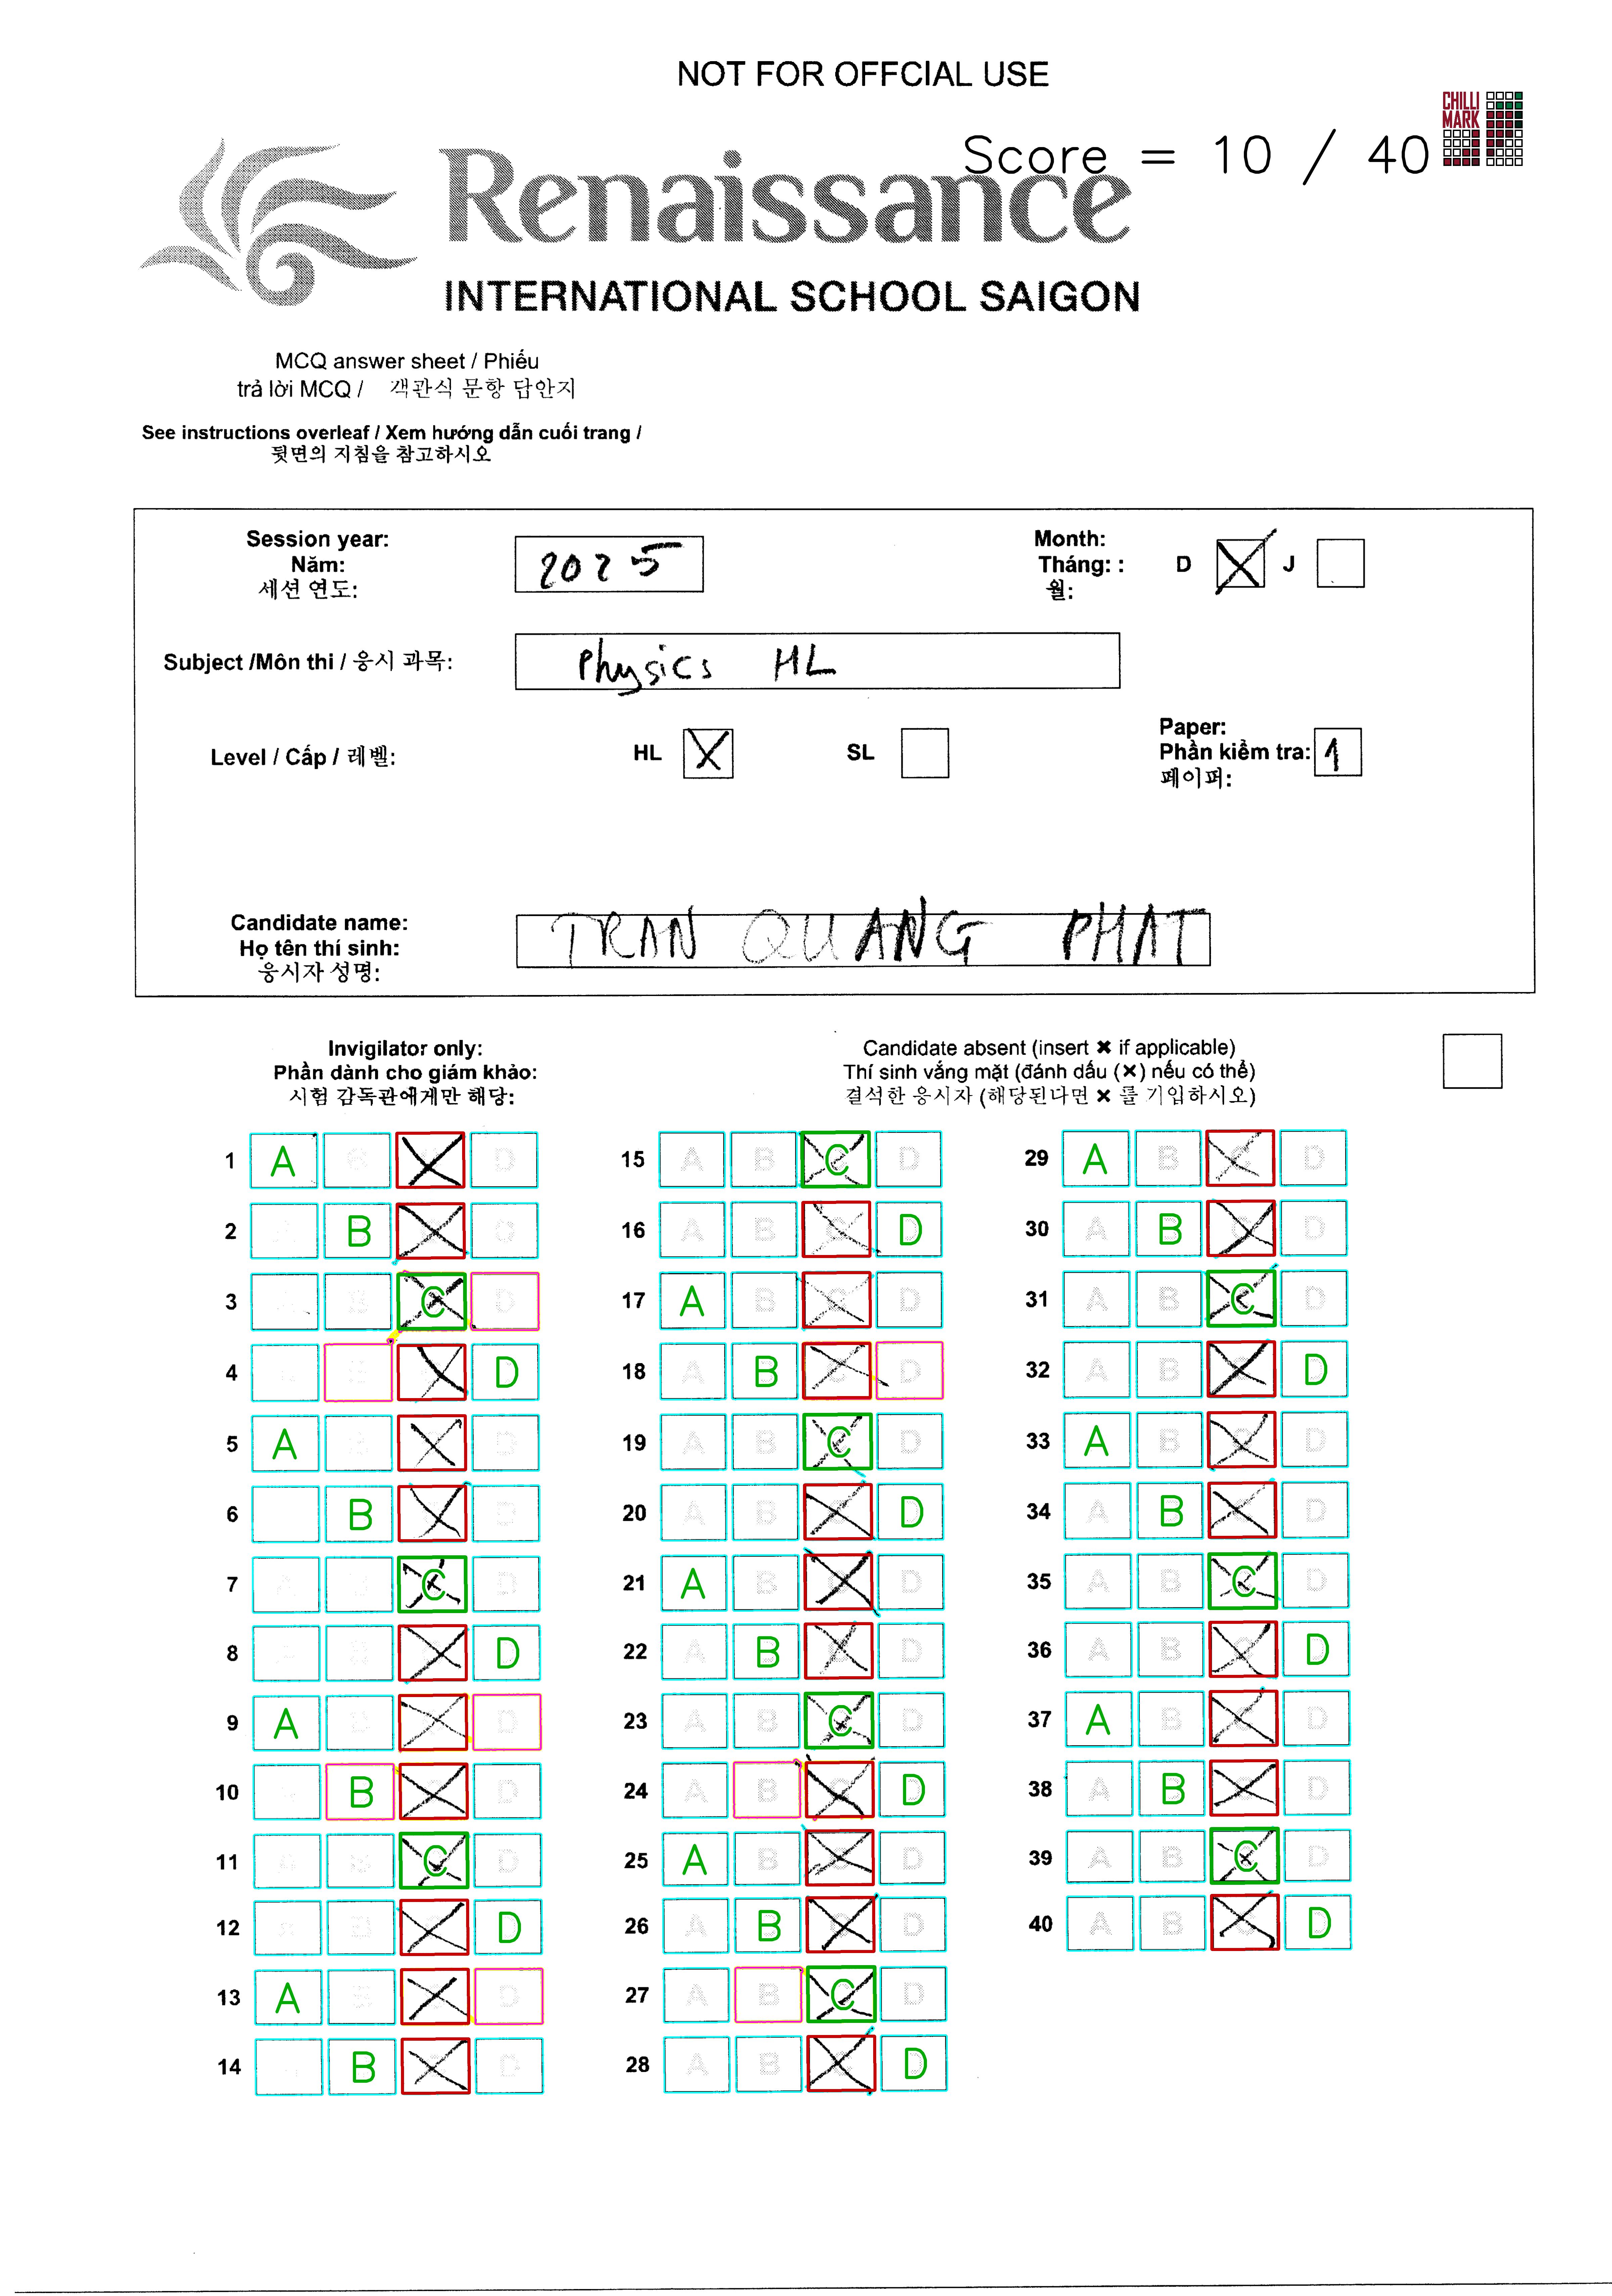 NOT FOR OFFCIAL USE
CHILLI
MARK
Score = 10 / 40
Renaissance
INTERNATIONAL SCHOOL SAIGON
MCQ answer sheet / Phiếu
trả lời MCQ / 객관식 문항 답안지
See instructions overleaf / Xem hướng dẫn cuối trang /
뒷면의 지침을 참고하시오
Session year:
Năm:
세션 연도:
2025
Month:
Tháng: :
월:
D
J
Subject /Môn thi / 응시 과목:
Physics HL
Level / Cấp / 레벨:
HL
SL
Paper:
Phần kiểm tra:
페이퍼:
1
Candidate name:
Họ tên thí sinh:
응시자 성명:
TRAN QUANG PHAT
Invigilator only:
Phần dành cho giám khảo:
시험 감독관에게만 해당:
Candidate absent (insert ✖ if applicable)
Thí sinh vắng mặt (đánh dấu (✖) nếu có thể)
결석한 응시자 (해당된다면 ✖ 를 기입하시오)
1 A D
2 B
3 C D
4 D
5 A D
6 B D
7 C D
8 D
9 A D
10 B D
11 C D
12 D
13 A D
14 B D
15 A B C D
16 A B D
17 A B D
18 A B D
19 A B C D
20 A B D
21 A B D
22 A B D
23 A B C D
24 A B D
25 A B D
26 A B D
27 A B C D
28 A B D
29 A B D
30 A B D
31 A B C D
32 A B D
33 A B D
34 A B D
35 A B C D
36 A B D
37 A B D
38 A B D
39 A B C D
40 A B D